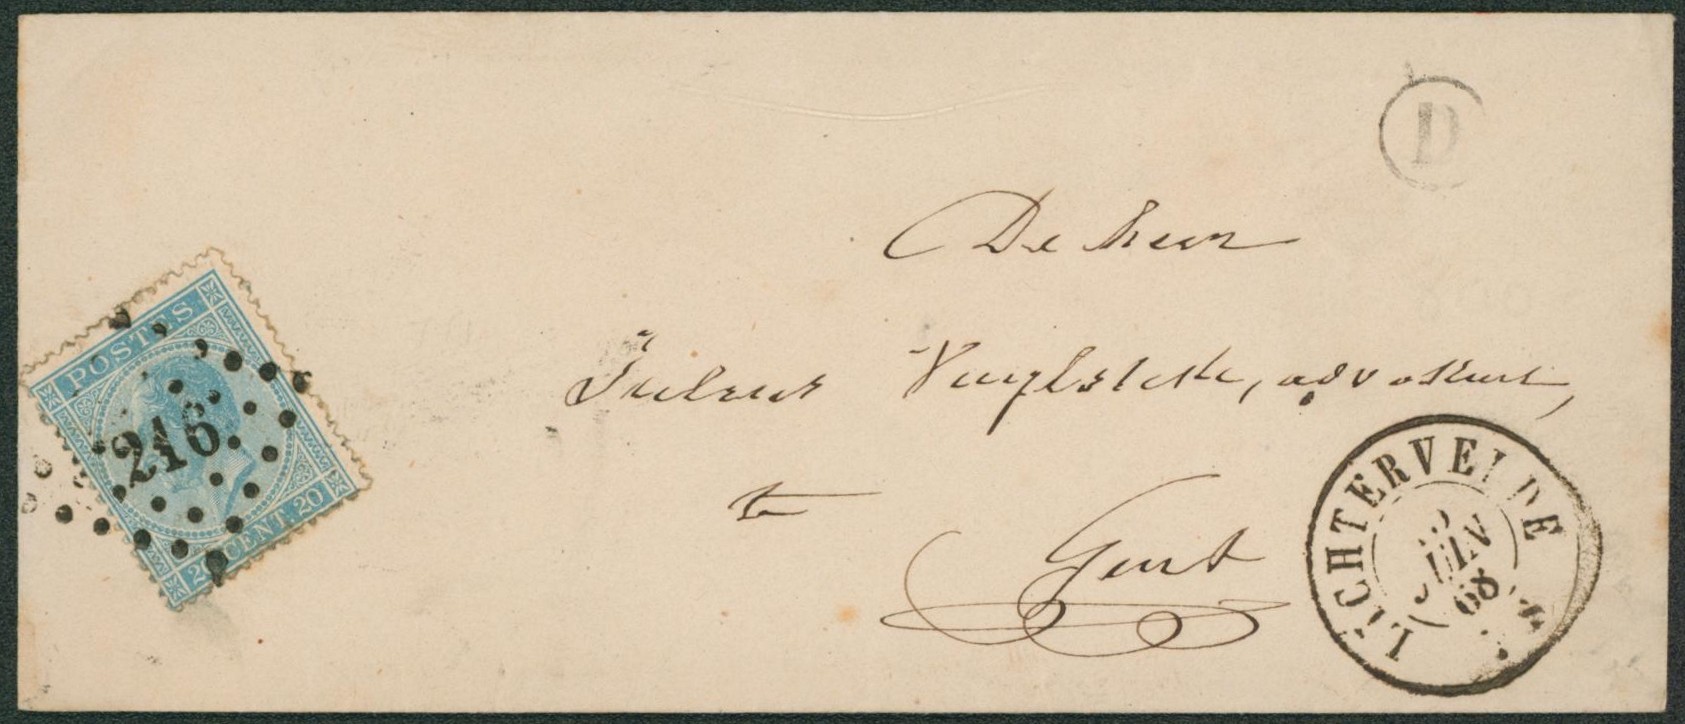 D
De heer
Julius Vuylsteke, advokaat,
te
Gent
POSTES
216
20 CENT. 20
LICHTERVELDE
3
JUIN
68